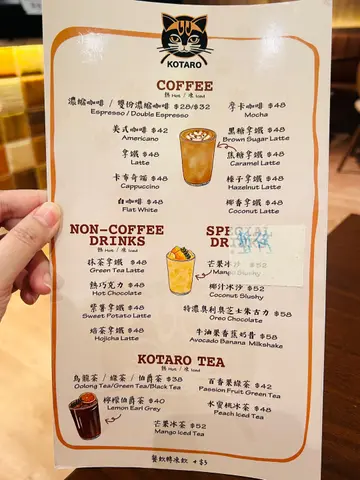 KOTARO
COFFEE
熱 Hot / 凍 Iced
濃縮咖啡 / 雙份濃縮咖啡 $28/$32
Espresso / Double Espresso
摩卡咖啡 $48
Mocha
美式咖啡 $42
Americano
黑糖拿鐵 $48
Brown Sugar Latte
拿鐵 $48
Latte
焦糖拿鐵 $48
Caramel Latte
卡布奇諾 $48
Cappuccino
榛子拿鐵 $48
Hazelnut Latte
白咖啡 $48
Flat White
椰香拿鐵 $48
Coconut Latte
NON-COFFEE
DRINKS
熱 Hot / 凍 Iced
抹茶拿鐵 $48
Green Tea Latte
熱巧克力 $48
Hot Chocolate
紫薯拿鐵 $48
Sweet Potato Latte
焙茶拿鐵 $48
Hojicha Latte
SPECIAL
DR
芒果冰沙 $52
Mango Slushy
椰汁冰沙 $52
Coconut Slushy
特濃奧利奧芝士朱古力 $58
Oreo Chocolate
牛油果香蕉奶昔 $58
Avocado Banana Milkshake
KOTARO TEA
熱 Hot / 凍 Iced
烏龍茶 / 綠茶 / 伯爵茶 $38
Oolong Tea/Green Tea/Black Tea
百香果綠茶 $42
Passion Fruit Green Tea
檸檬伯爵茶 $40
Lemon Earl Grey
水蜜桃冰茶 $48
Peach Iced Tea
芒果冰茶 $52
Mango Iced Tea
餐飲轉凍飲 +$3